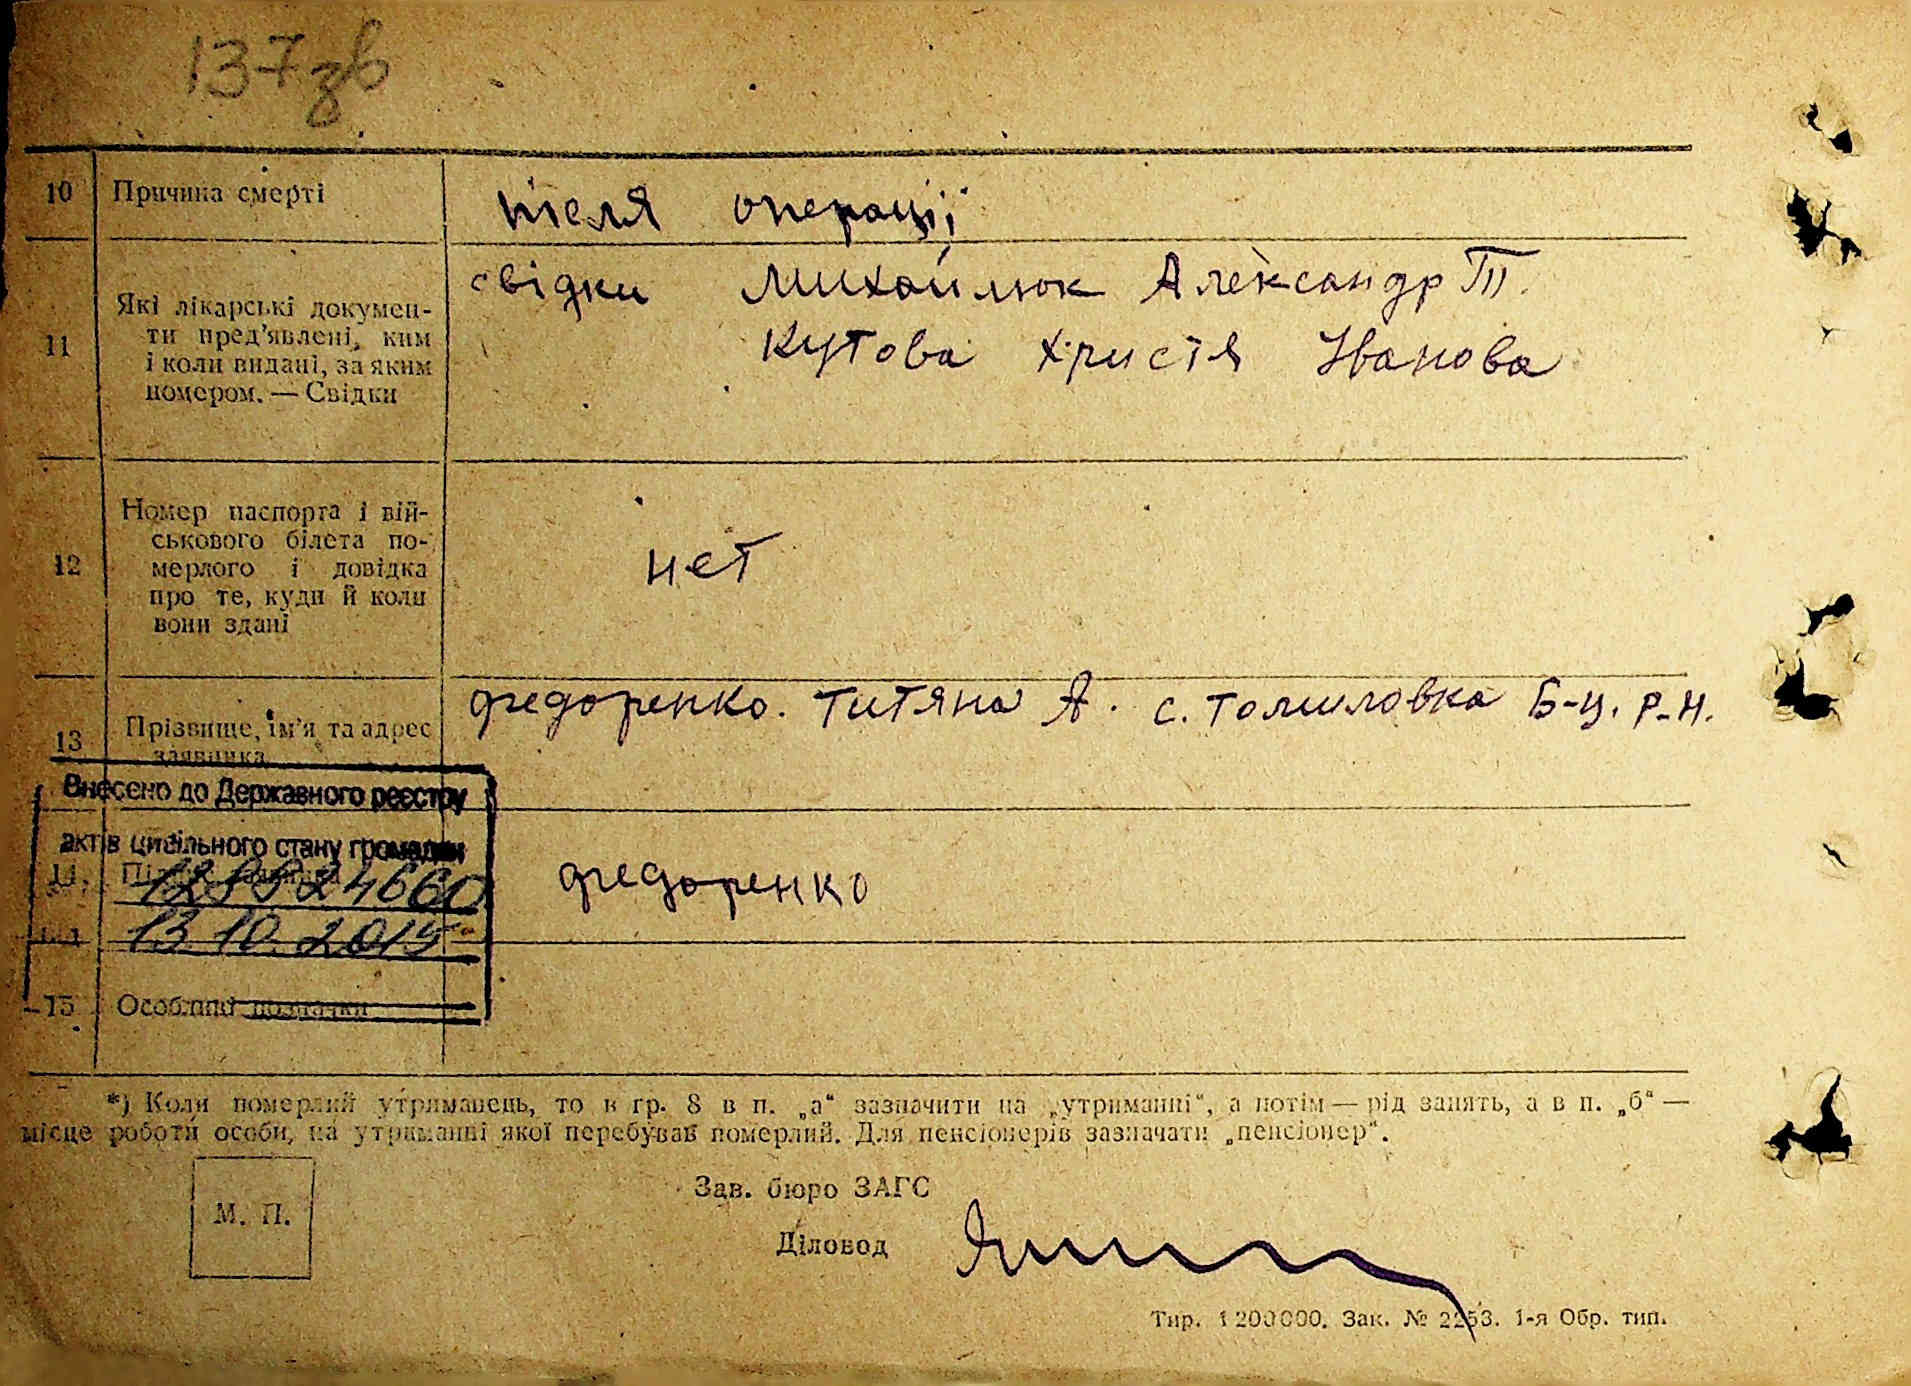 137зв
10 Причина смерті
після операції
11 Які лікарські докумен-
ти пред'явлені, ким
і коли видані, за яким
номером. — Свідки
свідки Михайлюк Александр Т.
Кутова Христя Іванова
12 Номер паспорта і вій-
ськового білета по-
мерлого і довідка
про те, куди й коли
вони здані
нет
13 Прізвище, ім'я та адрес
заявника
федоренко. титяна А. с. томиловка Б-ц. р-н.
Внесено до Державного реєстру
актів цивільного стану громадян
14
федоренко
13 10. 2015
15 Особливі позначки
*) Коли померлий утриманець, то в гр. 8 в п. „а“ зазначити на „утриманні“, а потім — рід занять, а в п. „б“ —
місце роботи особи, на утриманні якої перебував померлий. Для пенсіонерів зазначати „пенсіонер“.
М. П.
Зав. бюро ЗАГС
Діловод
Тир. 1200000. Зак. № 2253. 1-я Обр. тип.